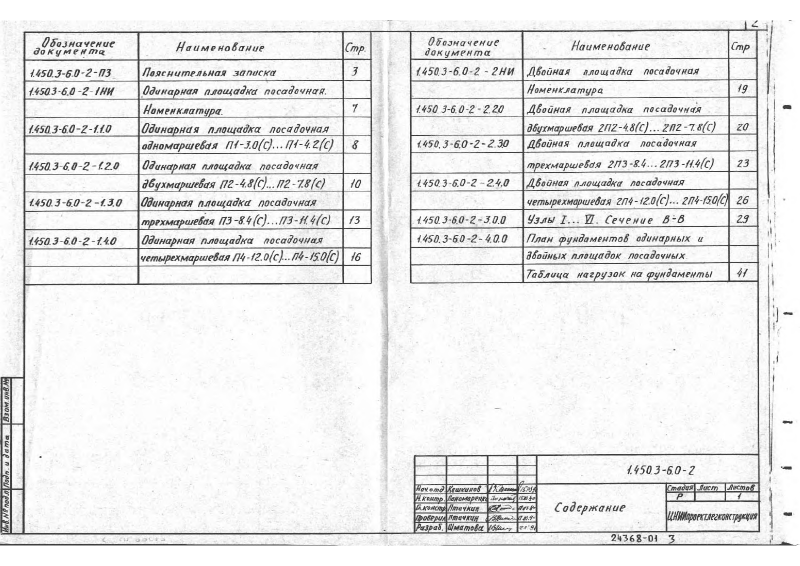 2
Обозначение документа Наименование Стр.
1.450.3-6.0-2-ПЗ Пояснительная записка 3
1.450.3-6.0-2-1НИ Одинарная площадка посадочная.
Номенклатура. 7
1.450.3-6.0-2-1.1.0 Одинарная площадка посадочная
одномаршевая П1-3.0(С)...П1-4.2(С) 8
1.450.3-6.0-2-1.2.0 Одинарная площадка посадочная
двухмаршевая П2-4.8(С)...П2-7.8(С) 10
1.450.3-6.0-2-1.3.0 Одинарная площадка посадочная
трехмаршевая П3-8.4(С)...П3-11.4(С) 13
1.450.3-6.0-2-1.4.0 Одинарная площадка посадочная
четырехмаршевая П4-12.0(С)...П4-15.0(С) 16
Обозначение документа Наименование Стр
1.450.3-6.0-2-2НИ Двойная площадка посадочная
Номенклатура 19
1.450.3-6.0-2-2.2.0 Двойная площадка посадочная
двухмаршевая 2П2-4.8(С)...2П2-7.8(С) 20
1.450.3-6.0-2-2.3.0 Двойная площадка посадочная
трехмаршевая 2П3-8.4...2П3-11.4(С) 23
1.450.3-6.0-2-2.4.0 Двойная площадка посадочная
четырехмаршевая 2П4-12.0(С)...2П4-15.0(С) 26
1.450.3-6.0-2-3.0.0 Узлы I...VI. Сечение В-В 29
1.450.3-6.0-2-4.0.0 План фундаментов одинарных и
двойных площадок посадочных
Таблица нагрузок на фундаменты 41
Взам.инв.№
Подп. и дата
Инв.№ подл.
1.450.3-6.0-2
Нач.отд.
Н.контр. Пономаренко
Гл.констр. Птачкин
Проверил Птачкин
Разраб. Шматова
Содержание
Стадия Лист Листов
Р 1
ЦНИИпроектлегконструкция
24368-01 3